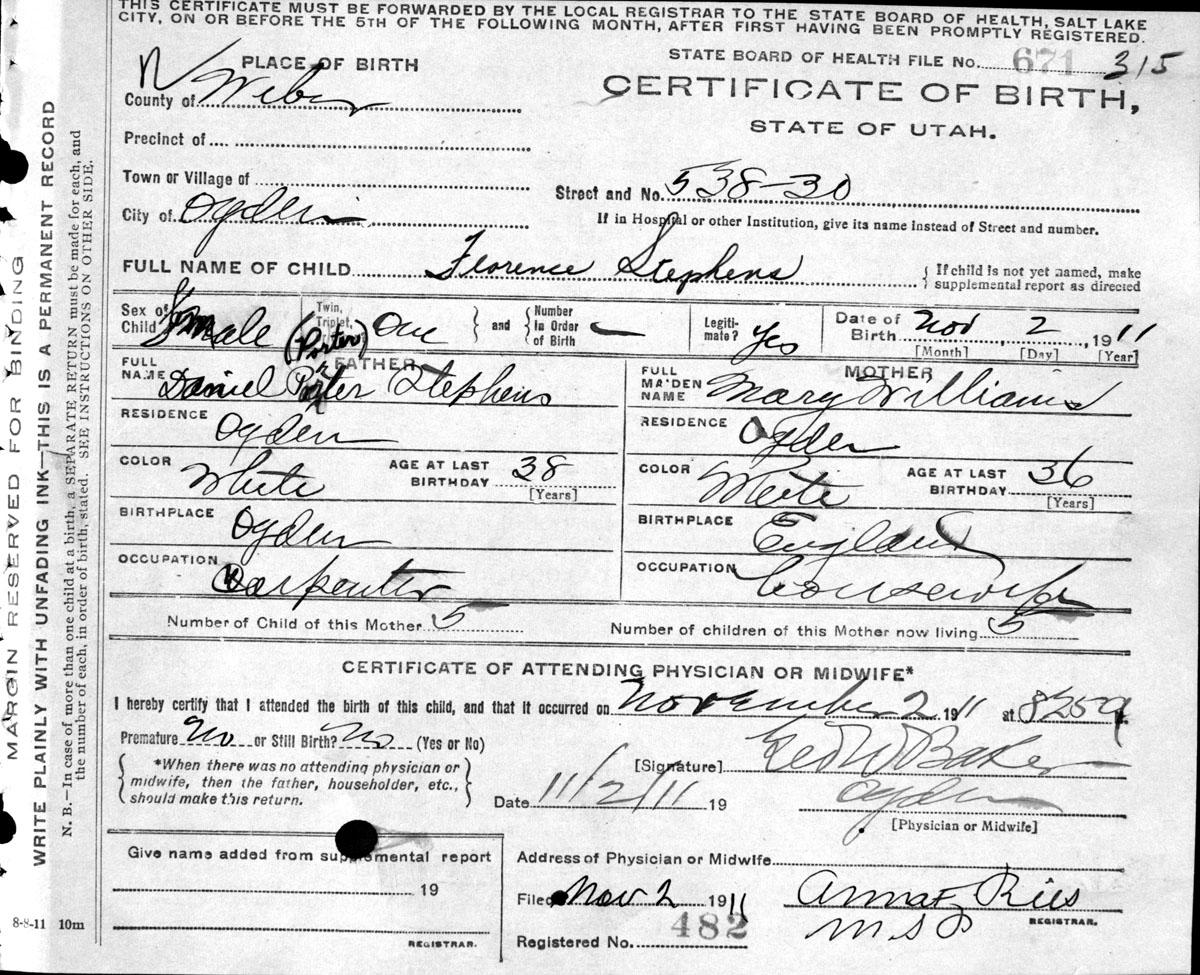 THIS CERTIFICATE MUST BE FORWARDED BY THE LOCAL REGISTRAR TO THE STATE BOARD OF HEALTH, SALT LAKE
CITY, ON OR BEFORE THE 5TH OF THE FOLLOWING MONTH, AFTER FIRST HAVING BEEN PROMPTLY REGISTERED.
STATE BOARD OF HEALTH FILE No. 671 315
PLACE OF BIRTH
CERTIFICATE OF BIRTH,
STATE OF UTAH.
County of Weber
Precinct of
Town or Village of
Street and No. 538-30
City of Ogden
If in Hospital or other Institution, give its name instead of Street and number.
FULL NAME OF CHILD Florence Stephens { If child is not yet named, make
supplemental report as directed
Sex of Child Female
Twin, Triplet, One } and { Number in Order of Birth —
Legiti-mate? Yes
Date of Birth Nov 2, 1911
[Month] [Day] [Year]
(Porter)
FATHER
FULL NAME Daniel Stephens
RESIDENCE Ogden
COLOR White AGE AT LAST BIRTHDAY 38 [Years]
BIRTHPLACE Ogden
OCCUPATION Carpenter
MOTHER
FULL MAIDEN NAME Mary Williams
RESIDENCE Ogden
COLOR White AGE AT LAST BIRTHDAY 36 [Years]
BIRTHPLACE England
OCCUPATION Housewife
Number of Child of this Mother 5 Number of children of this Mother now living 5
CERTIFICATE OF ATTENDING PHYSICIAN OR MIDWIFE*
I hereby certify that I attended the birth of this child, and that it occurred on November 2 1911 at 825
Premature No or Still Birth? No (Yes or No)
*When there was no attending physician or
midwife, then the father, householder, etc.,
should make this return.
[Signature] Geo W Baker
Date 11/2/11 19
Ogden
[Physician or Midwife]
Give name added from supplemental report
19
REGISTRAR.
Address of Physician or Midwife
Filed Nov 2 1911 Anna F Ries
REGISTRAR.
Registered No. 482
8-8-11 10m
MARGIN RESERVED FOR BINDING
WRITE PLAINLY WITH UNFADING INK—THIS IS A PERMANENT RECORD
N. B.—In case of more than one child at birth, a SEPARATE RETURN must be made for each, and
the number of each, in order of birth, stated. SEE INSTRUCTIONS ON OTHER SIDE.